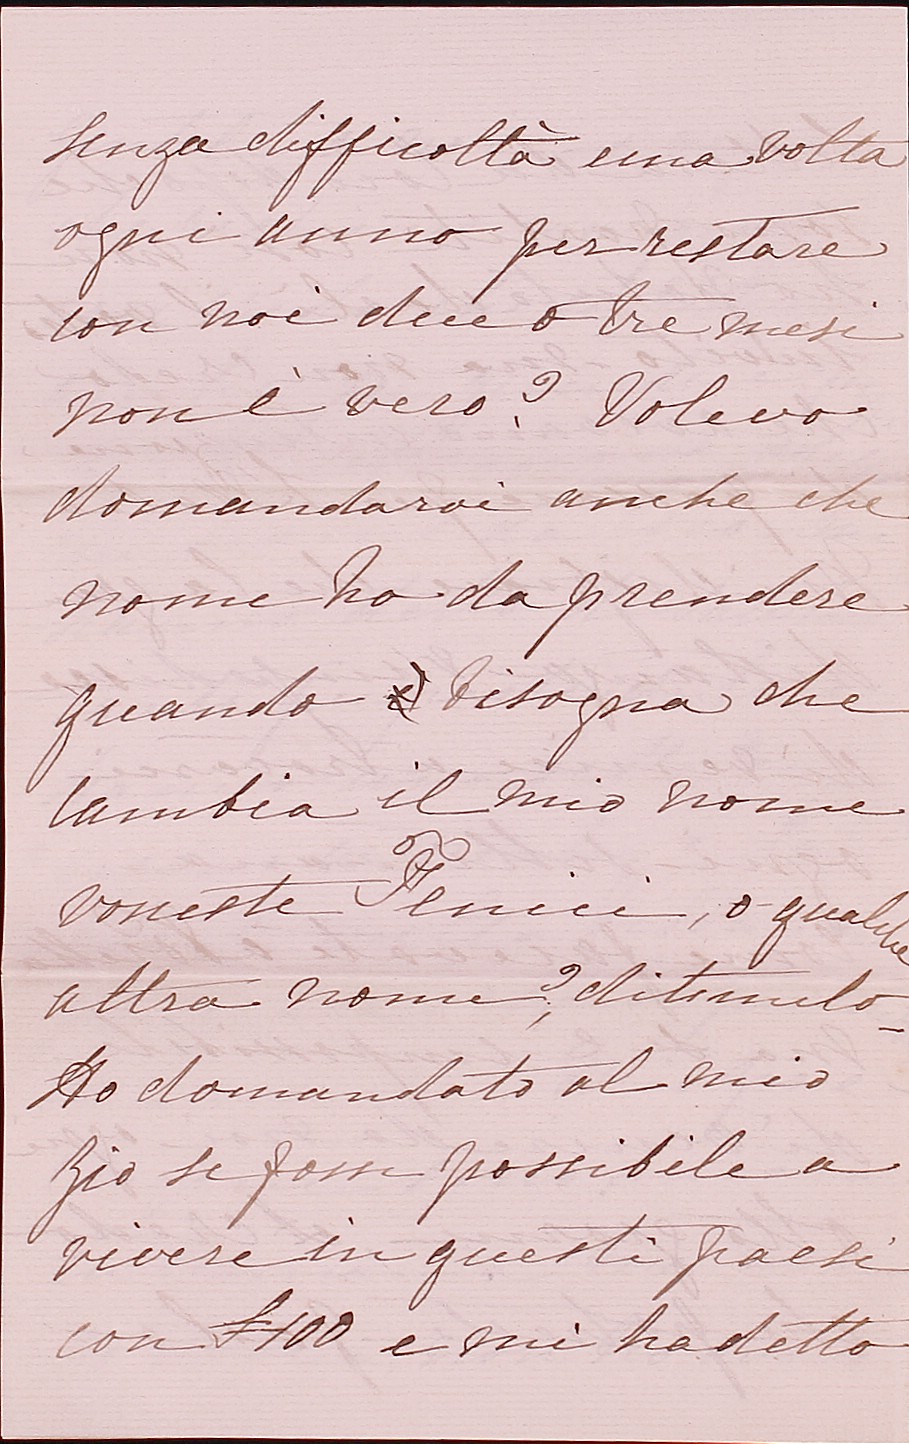 senza difficoltà una volta
ogni anno per restare
con noi due o tre mesi
non è vero? Volevo
domandarvi anche che
nome ho da prendere
quando bisogna che
cambia il mio nome
voreste Fenici, o qualche
altra nome?, ditemelo-
Ho domandato al mio
Zio se fosse possibile a
vivere in questi paesi
con £400 e mi ha detto